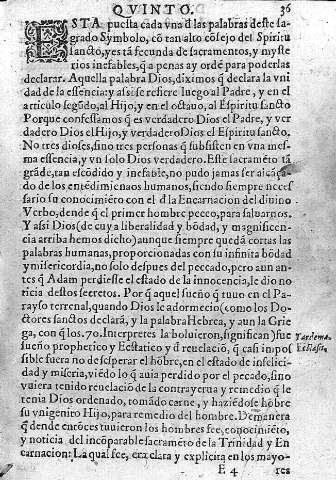 QVINTO. 36
ESTA puesta cada vna d las palabras deste sa-
grado Symbolo, cō tan alto cōsejo del Spiritu
sancto, y està fecunda de sacramentos, y myste
rios inefables, q̄ a penas ay ordē para poderlas
declarar. Aquella palabra Dios, diximos q̄ declara la vni
dad de la essencia: y assi se refiere luego al Padre, y en el
articulo segūdo, al Hijo, y en el octauo, al Espiritu sancto
Porque confessamos q̄ es verdadero Dios el Padre, y ver
dadero Dios el Hijo, y verdadero Dios el Espiritu sancto.
No tres dioses, sino tres personas q̄ subsisten en vna mes-
ma essencia, y vn solo Dios verdadero. Este sacramēto tā
grāde, tan escōdido y inefable, no pudo jamas ser alçaço
do de los entēdimiēnaos humanos, siendo siempre neces
sario su conocimiēto con el d la Encarnacion del diuino
Verbo, dende q̄ el primer hombre pecco, para saluarnos.
Y assi Dios (de cuya liberalidad y bōdad, y magnificen
cia arriba hemos dicho) aunque siempre quedā cortas las
palabras humanas, proporcionadas con su infinita bōdad
y misericordia, no solo despues del peccado, pero aun an-
tes q̄ Adam perdiesse el estado de la innocencia, le dio no
ticia destos secretos. Por q̄ aquel sueño q̄ tuuo en el Pa-
rayso terrenal, quando Dios le adormecio (como los Do-
ctores sanctos declarā, y la palabra Hebrea, y aun la Grie
ga, con q̄ los. 70. Interpretes la boluieron, significan) fue
sueño prophetico y Ecstatico d̄ reuelaciō, q̄ casi impos
sible fuera no desesperar el hōbre, en el estado de infelici-
dad y miseria, viēdo lo q̄ auia perdido por el pecado, sino
vuiera tenido reuelaciō de la contrayerua y remedio q̄ le
tenia Dios ordenado, tomādo carne, y haziēdose hōbre
su vnigenito Hijo, para remedio del hombre. De manera
q̄ dende entōces tuuieron los hombres fee, conocimiēto,
y noticia del incōparable sacramēto de la Trinidad y En
carnacion: La qual fee, era clara y explicita en los mayo-
E 4 res
Tardema.
Ecstasis.